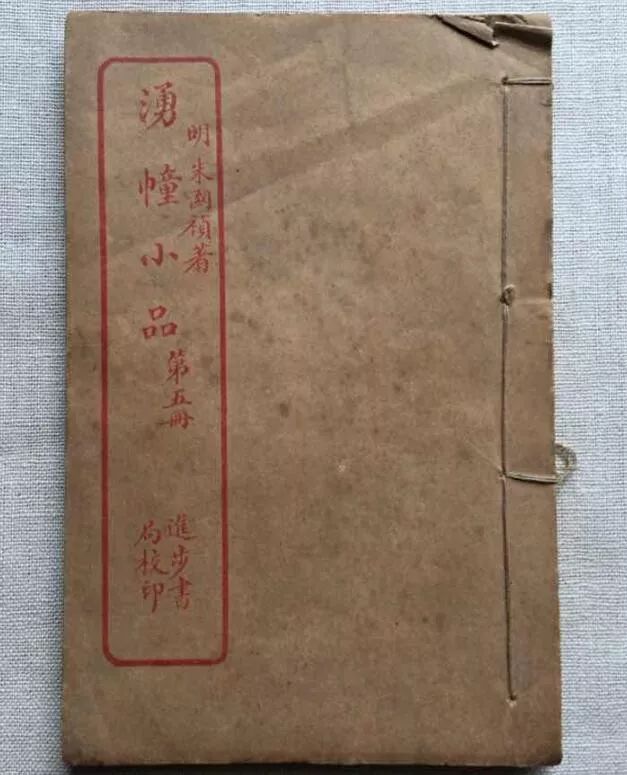 明朱國禎著
湧幢小品
第五冊
進步書
局校印